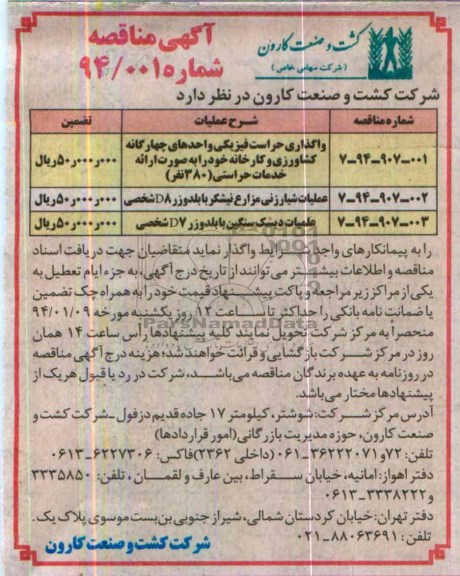 آگهی مناقصه
شماره ۹۴/۰۰۱
کشت و صنعت کارون
(شرکت سهامی خاص)
شرکت کشت و صنعت کارون در نظر دارد
شماره مناقصه شرح عملیات تضمین
۷-۹۴-۹۰۷-۰۰۱ واگذاری حراست فیزیکی واحدهای چهارگانه کشاورزی و کارخانه خود را به صورت ارائه خدمات حراستی (۳۸۰ نفر) ۵۰ر۰۰۰ر۰۰۰ ریال
۷-۹۴-۹۰۷-۰۰۲ عملیات شیارزنی مزارع نیشکر با بلدوزر D8 شخصی ۵۰ر۰۰۰ر۰۰۰ ریال
۷-۹۴-۹۰۷-۰۰۳ عملیات دیسک سنگین با بلدوزر D7 شخصی ۵۰ر۰۰۰ر۰۰۰ ریال
را به پیمانکارهای واجد شرایط واگذار نماید متقاضیان جهت دریافت اسناد
مناقصه و اطلاعات بیشتر می‌توانند از تاریخ درج آگهی، به جزء ایام تعطیل به
یکی از مراکز زیر مراجعه و پاکت پیشنهاد قیمت خود را به همراه چک تضمین
یا ضمانت نامه بانکی را حداکثر تا ساعت ۱۲ روز یکشنبه مورخه ۹۴/۰۱/۰۹
منحصراً به مرکز شرکت تحویل نمایند کلیه پیشنهادها رأس ساعت ۱۴ همان
روز در مرکز شرکت بازگشایی و قرائت خواهند شد؛ هزینه درج آگهی مناقصه
در روزنامه به عهده برندگان مناقصه می‌باشد، شرکت در رد یا قبول هریک از
پیشنهادها مختار می‌باشد.
آدرس مرکز شرکت: شوشتر، کیلومتر ۱۷ جاده قدیم دزفول -شرکت کشت و
صنعت کارون، حوزه مدیریت بازرگانی (امور قراردادها)
تلفن: ۷۲ و ۳۶۲۲۲۰۷۱-۰۶۱ (داخلی ۲۳۶۲) فاکس: ۶۲۲۷۳۰۶-۰۶۱۳
دفتر اهواز: امانیه، خیابان سقراط، بین عارف و لقمان، تلفن: ۳۳۳۵۸۵۰
و ۳۳۳۸۲۲۲-۰۶۱۳
دفتر تهران: خیابان کردستان شمالی، شیراز جنوبی بن‌بست موسوی پلاک یک.
تلفن: ۸۸۰۶۳۶۹۱-۰۲۱
شرکت کشت و صنعت کارون